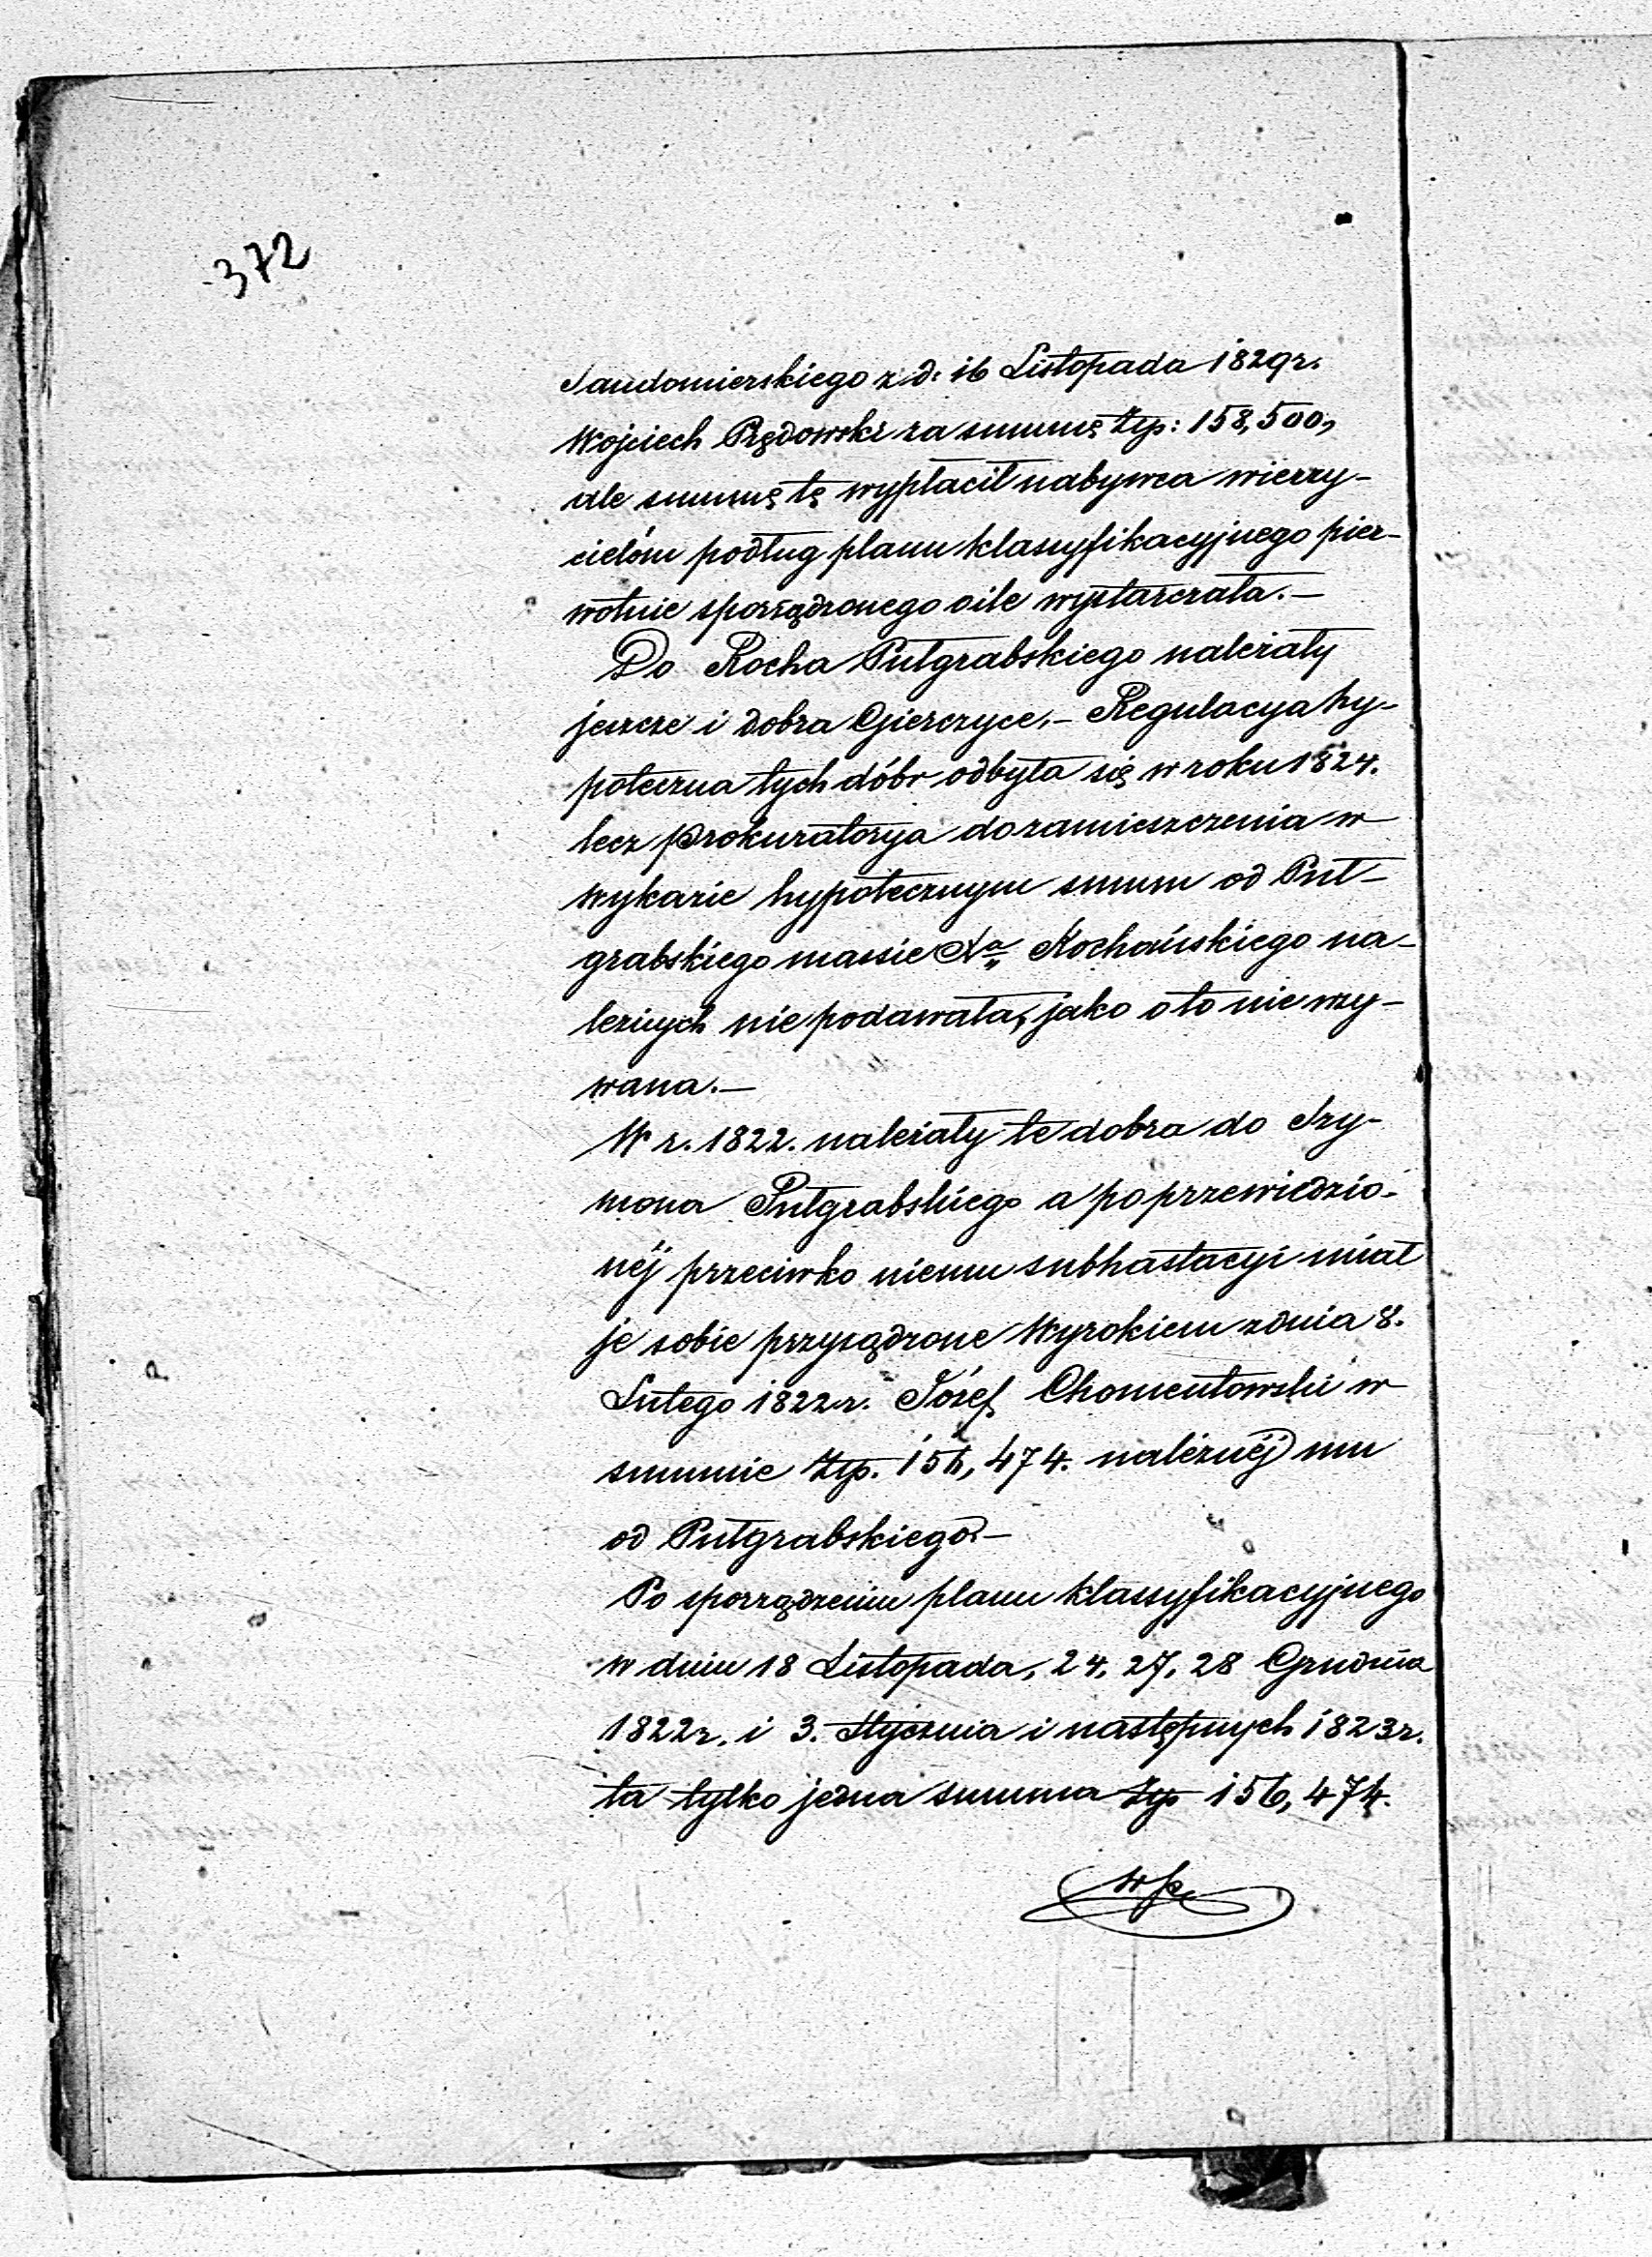 372
Sandomierskiego z d: 16 Listopada 1829r.
Wojciech Prędowski za summę Złp: 158,500,
ale summę tę wypłacił nabywca wierzy-
cielóm podług planu klassyfikacyjnego pier-
wotnie sporządzonego o ile wystarczała.—
Do Rocha Putgrabskiego należały
jeszcze i dobra Gierczyce.— Regulacya hy-
poteczna tych dóbr odbyła się w roku 1824.
lecz Prokuratorya do zamieszczenia w
wykazie hypotecznym summ od Put-
grabskiego massie Xa Kochańskiego na-
leżnych nie podawała, jako o to nie wzy-
wana.—
W r. 1822. należały te dobra do Szy-
mona Putgrabskiego a po przewiedzio-
néj przeciwko niemu subhastacyi miał
je sobie przysądzone Wyrokiem z dnia 8.
Lutego 1822r. Józef Chomentowski w
summie Złp. 156,474. należnéj mu
od Putgrabskiego.—
Po sporządzeniu planu klassyfikacyjnego
w dniu 18 Listopada, 24, 27, 28 Grudnia
1822r. i 3. Stycznia i następnych 1823r.
ta tylko jedna summa Złp 156,474.